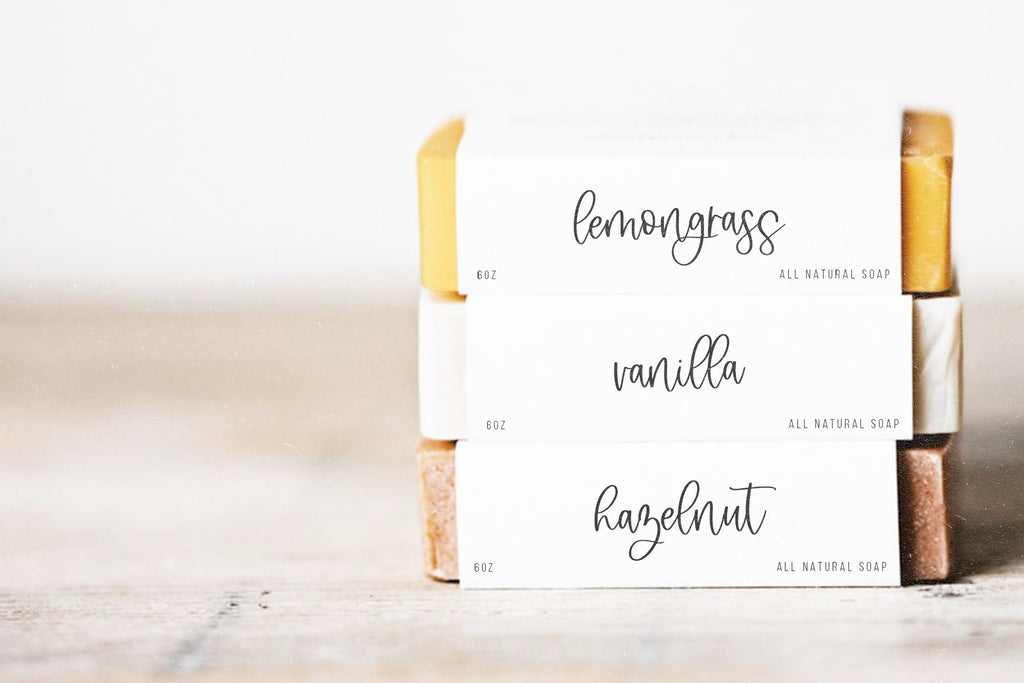 lemongrass
6OZ ALL NATURAL SOAP
vanilla
6OZ ALL NATURAL SOAP
hazelnut
6OZ ALL NATURAL SOAP